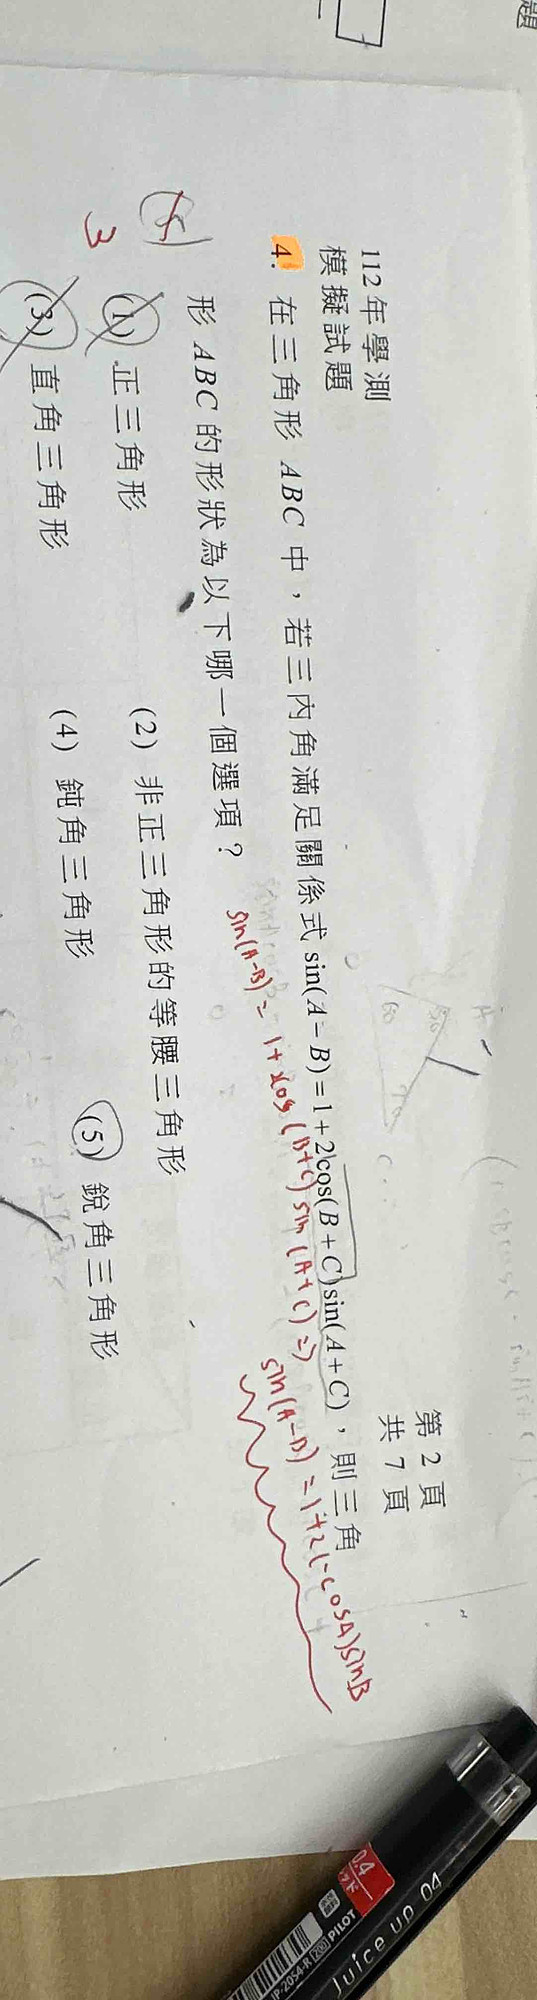 題
112年學測
模擬試題
第2頁
共7頁
4. 在三角形ABC中，若三內角滿足關係式sin(A−B)=1+2cos(B+C)sin(A+C)，則三角
形ABC的形狀為以下哪一個選項？
sin(A-B) = 1+2cos(B+C) sin(A+C) =>
sin(A-B) = 1+2(-cosA)sinB
3
(1) 正三角形
(2) 非正三角形的等腰三角形
(3) 直角三角形
(4) 鈍角三角形
(5) 銳角三角形
0.4
PILOT
Juice up 04